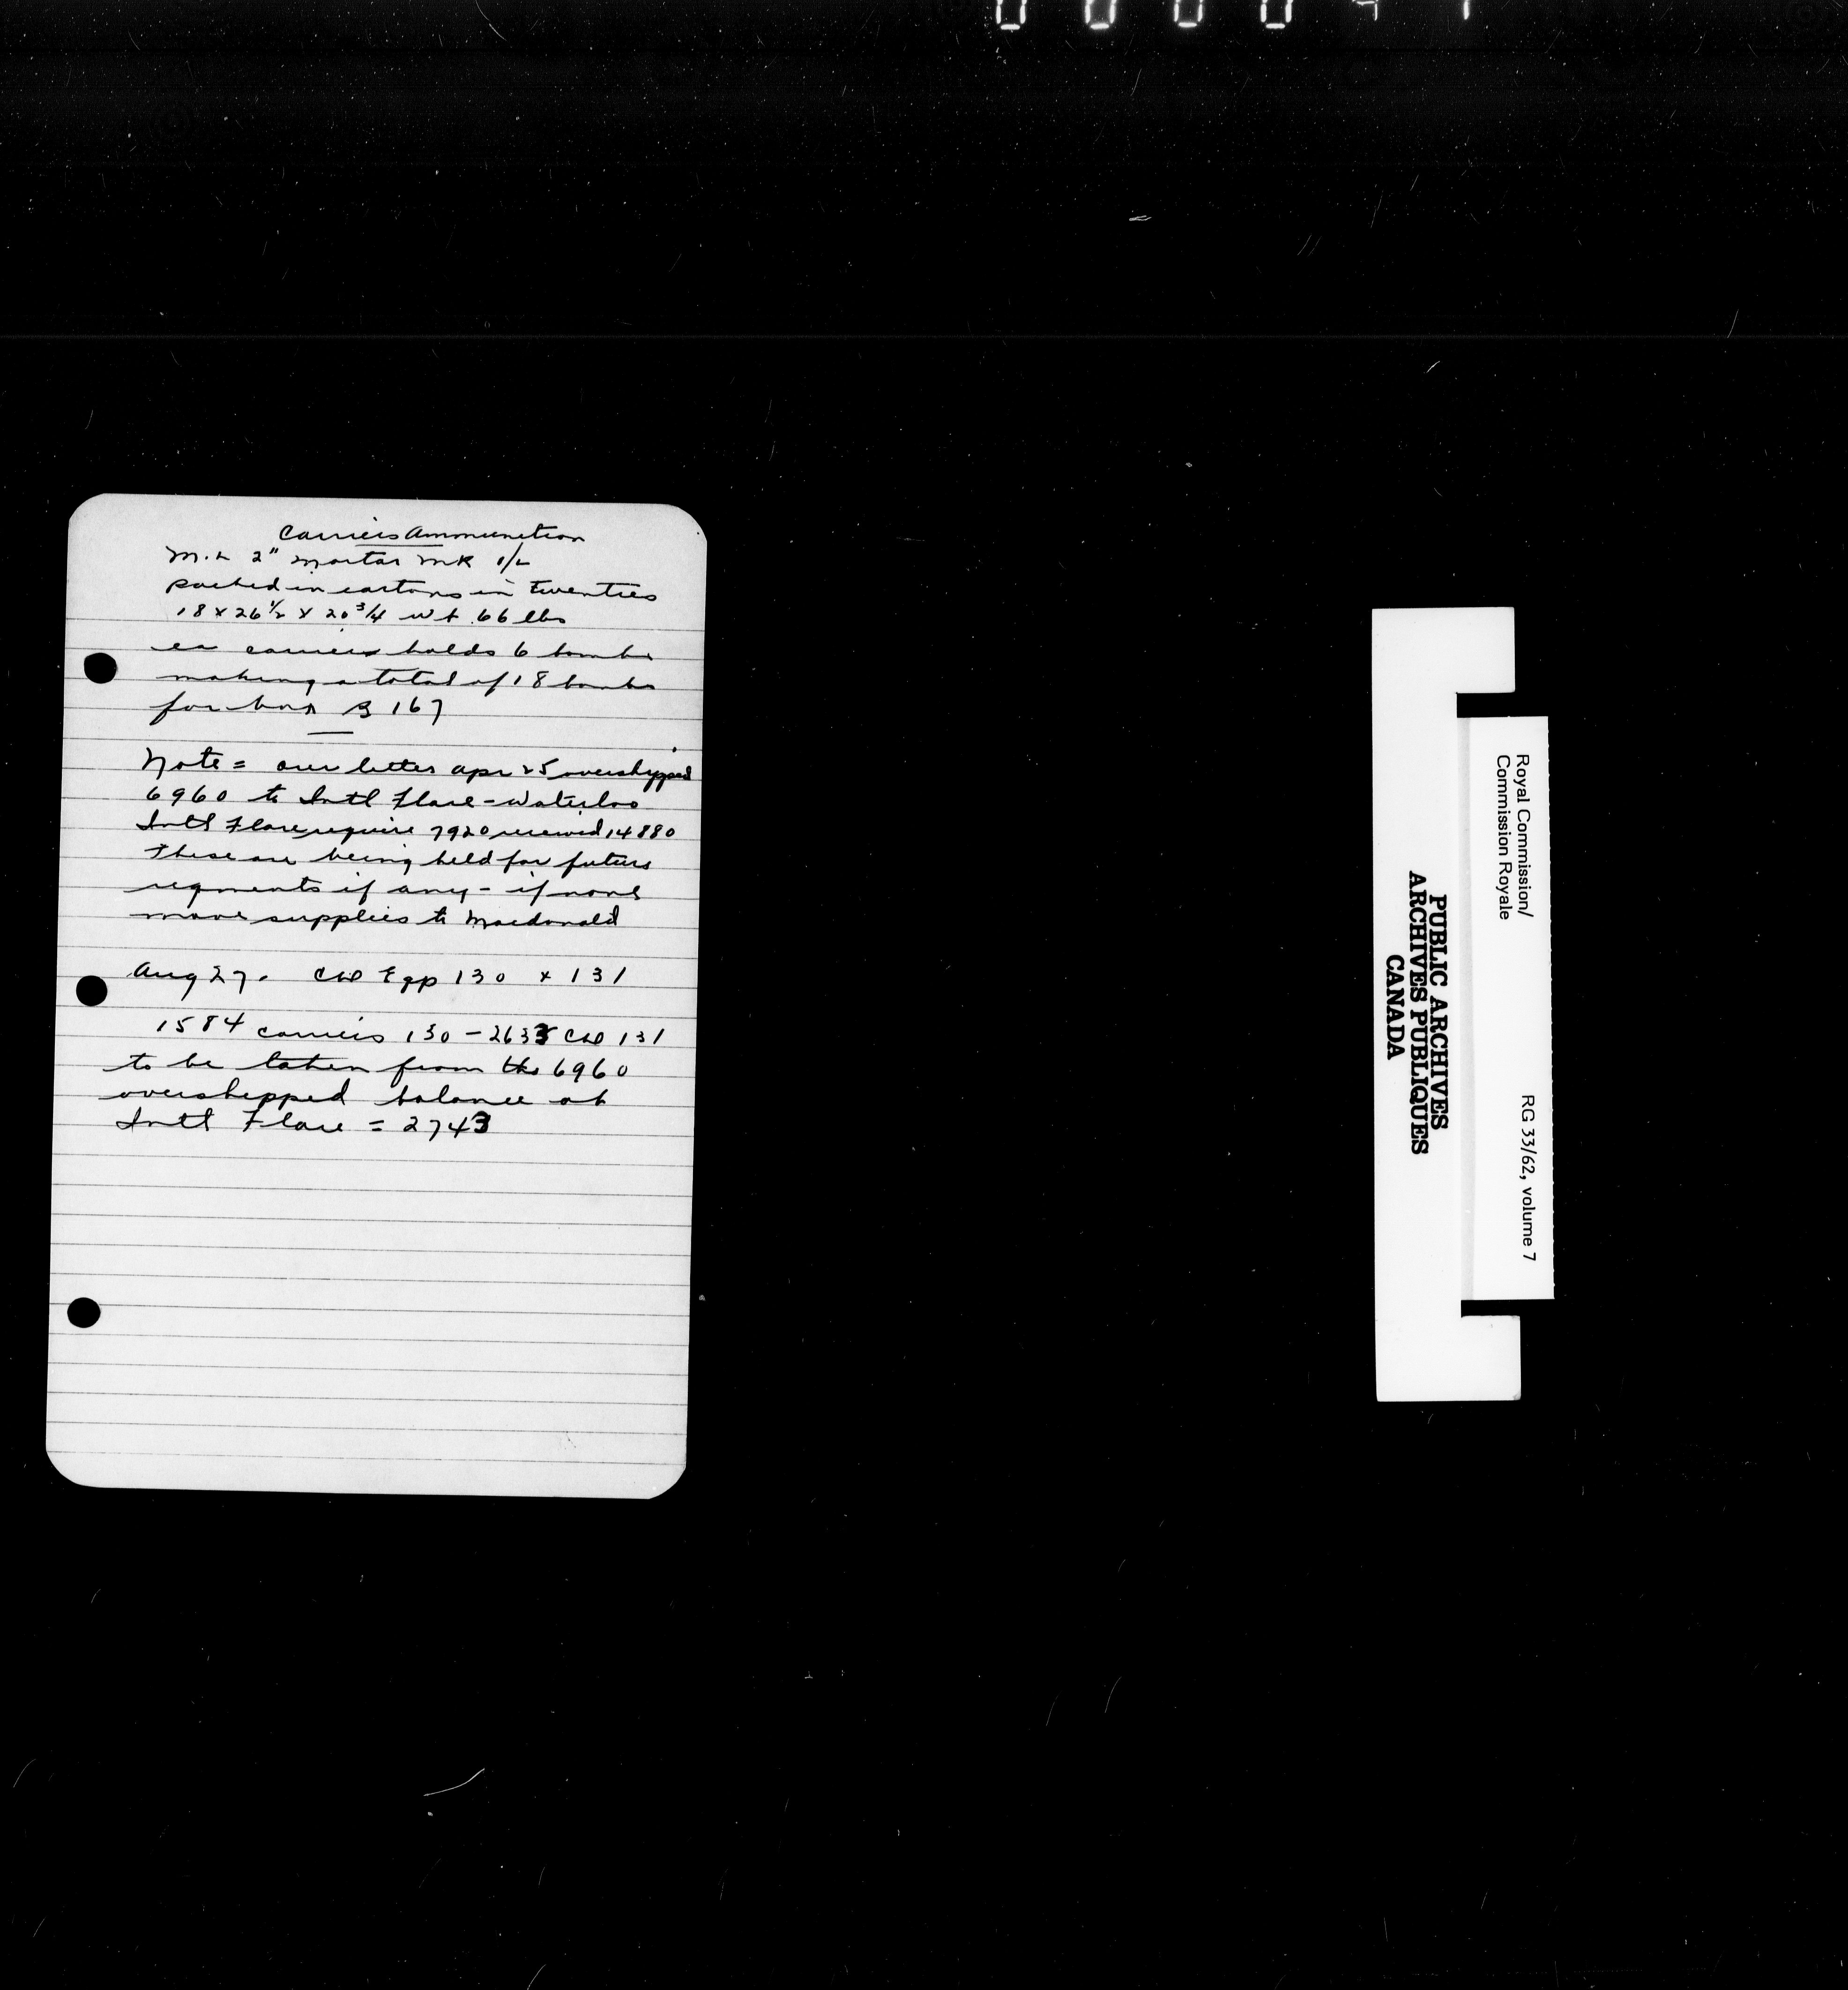 Carriers Ammunition
M.L 2" Mortar MK 1/L
packed in cartons in twenties
18 x 26 1/2 x 20 3/4 wt. 66 lbs
ea carrier holds 6 bombs
making a total of 18 bombs
for box B 167
Note = our letter apr 25 overshipped
6960 to Intl Flare - Waterloo
Intl Flare require 7920 received 14880
These are being held for future
reqments if any - if none
move supplies to Macdonald
Aug 27. CW Egp 130 + 131
1584 carriers 130 - 2633 CW 131
to be taken from the 6960
overshipped balance at
Intl Flare = 2743
Royal Commission/
Commission Royale
RG 33/62, volume 7
PUBLIC ARCHIVES
ARCHIVES PUBLIQUES
CANADA